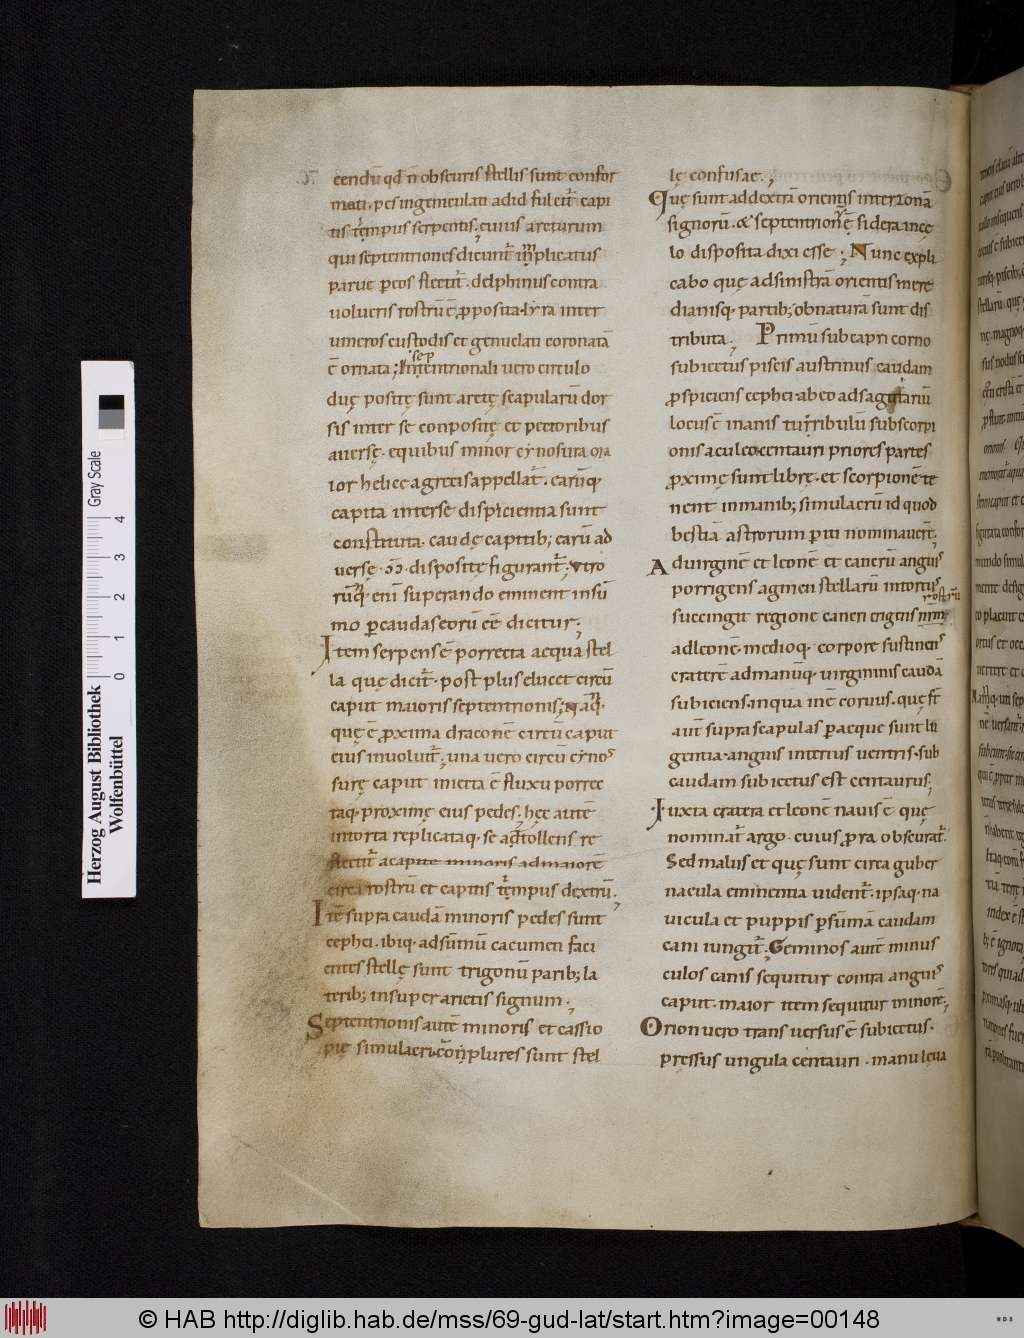 cendū qđ n̄ obscuris stellis sunt confor
mati. pes ingeniculati adid fulcit̄ capi
tis tēpus serpentis; cuius arcturum
qui septentriones dicunt̄ implicatus
parue p eos flectit̄. delphinus contra
uolucris rostrū ē p posita lyra inter
umeros custodis et geniculati coronatā
ē ornata; In septentrionali uero circulo
duę positę sunt arctę scapularū dor
sis inter se conpositę et pectoribus
auersę. equibus minor cynosura ma
ior helice agrecis appellat̄. carūq.
capita interse dispicientia sunt
constituta. caudę capitib; earū ad
uersę disposite figurant̄; vtro
rūq. eni superando eminent insū
mo p cauda seorū cē dicitur;
Item serpens ē porrecta acqua stel
la quę dicit̄. post plus elucet circū
caput maioris septentrionis; Naq.
quę ē proxima draconē circū caput
eius inuoluit̄. una uero circū cynos
surę caput iniecta ē fluxu porrec
taq. proximę eius pedes. hęc autē
intorta replicataq. se attollens re
flectit̄ acapite minoris admaiorē
circa rostrū et capitis tēpus dextrū.
Itē supra caudā minoris pedes sunt
cephei. ibiq. adsūmū cacumen faci
entes stellę sunt trigonū parib; la
terib; insuper arietis signum.
Septentrionis autē minoris et cassio
pię simulacri complures sunt stel
lę confusae.
Quę sunt addextrā orientis interzonā
signorū. & septentrionē sidera incę
lo disposita dixi esse; Nunc expli
cabo quę adsinistrā orientis mere
dianisq. partib; obnaturā sunt dis
tributa. Primū sub capri corno
subiectus piscis austrinus caudam
prospiciens cephei ab eo ad sagitariū
locus ē inanis turribulū subscorpi
onis aculeo centauri priores partes
proximę sunt librę. et scorpionē te
nent inmanib; simulacrū id quod
bestiā astrorum p iti nominauert̄.
Aduirginē et leonē et cancrū anguis
porrigens agmen stellarū intortus
succingit regionē cancri erigens rostrū
adleonē. medioq. corpore sustinens
craterē admanūq. uirginis caudā
subiciens. inqua inē coruus. quę st̄
aut̄ supra scapulas p aeque sunt lu
gentia. anguis interius uentris. sub
caudam subiectus est centaurus;
Iuxta cratera et leonē nauis ē quę
nominat̄ argo. cuius prora obscurat̄.
Sed malus et quę sunt circa guber
nacula eminentia uident̄. ipsaq. na
uicula et puppis p sūmā caudam
cani iungit̄. Geminos autē minus
culos canis sequitur contra anguis
caput. maior item sequitur minorē;
Orion uero transuersus ē subiectus.
pressus ungula centauri. manu leua
Herzog August Bibliothek
Wolfenbüttel
0 1 2 3 4
Gray Scale
© HAB http://diglib.hab.de/mss/69-gud-lat/start.htm?image=00148